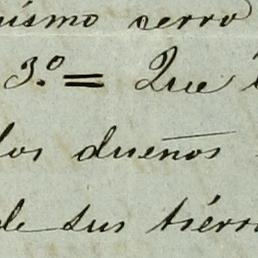 uismo cerro
3.º = Que
los dueños
de sus tiérra